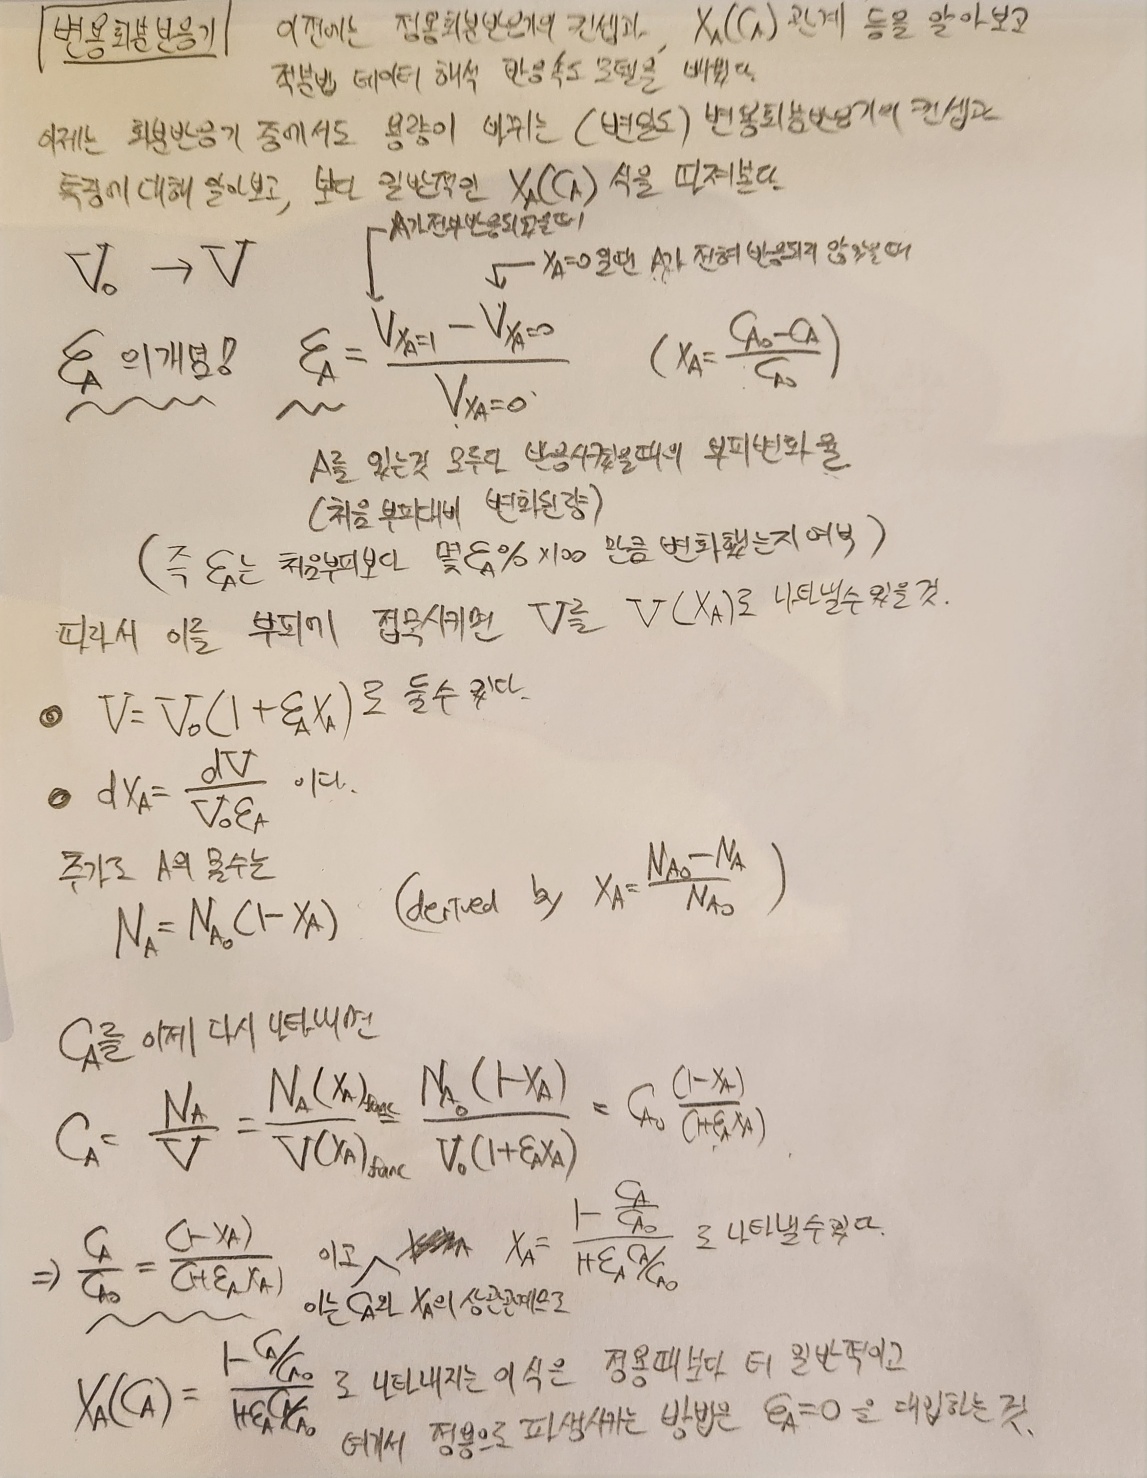 변용회분반응기 이전에는 정용회분반응기의 컨셉과, X_A(C_A) 관계 등을 알아보고
적분법 데이터 해석 반응속도 모델을 배웠다.
이제는 회분반응기 중에서도 용량이 바뀌는 (변밀도) 변용회분반응기의 컨셉과
특징에 대해 알아보고, 보다 일반적인 X_A(C_A) 식을 따져본다.
A가 전부 반응되고 없을때!
V₀ → V
X_A=0 일땐 A가 전혀 반응되지 않았을때
ε_A 의 개념? ε_A = (V_{X_A=1} - V_{X_A=0}) / V_{X_A=0} (X_A = (C_{A0} - C_A) / C_{A0})
A를 있는것 모두다 반응시켰을때의 부피변화율
(처음 부피대비 변화된량)
(즉 ε_A는 처음부피보다 몇 ε_A% ×100 만큼 변화했는지 여부)
따라서 이를 부피에 접목시키면 V를 V(X_A)로 나타낼수 있을것.
• V = V₀(1 + ε_A X_A)로 둘수 있다.
• dX_A = dV / (V₀ ε_A) 이다.
추가로 A의 몰수는
N_A = N_{A0}(1 - X_A) (derived by X_A = (N_{A0} - N_A) / N_{A0})
C_A를 이제 다시 나타내면
C_A = N_A / V = N_A(X_A)_{func} / V(X_A)_{func} = N_{A0}(1 - X_A) / V₀(1 + ε_A X_A) = C_{A0} (1 - X_A) / (1 + ε_A X_A)
⇒ C_A / C_{A0} = (1 - X_A) / (1 + ε_A X_A) 이고 X_A = (1 - C_A/C_{A0}) / (1 + ε_A C_A/C_{A0}) 로 나타낼수있다.
이는 C_A와 X_A의 상관관계므로
X_A(C_A) = (1 - C_A/C_{A0}) / (1 + ε_A C_A/C_{A0}) 로 나타내지는 이 식은 정용때보다 더 일반적이고
여기서 정용으로 파생시키는 방법은 ε_A = 0 을 대입하는 것.